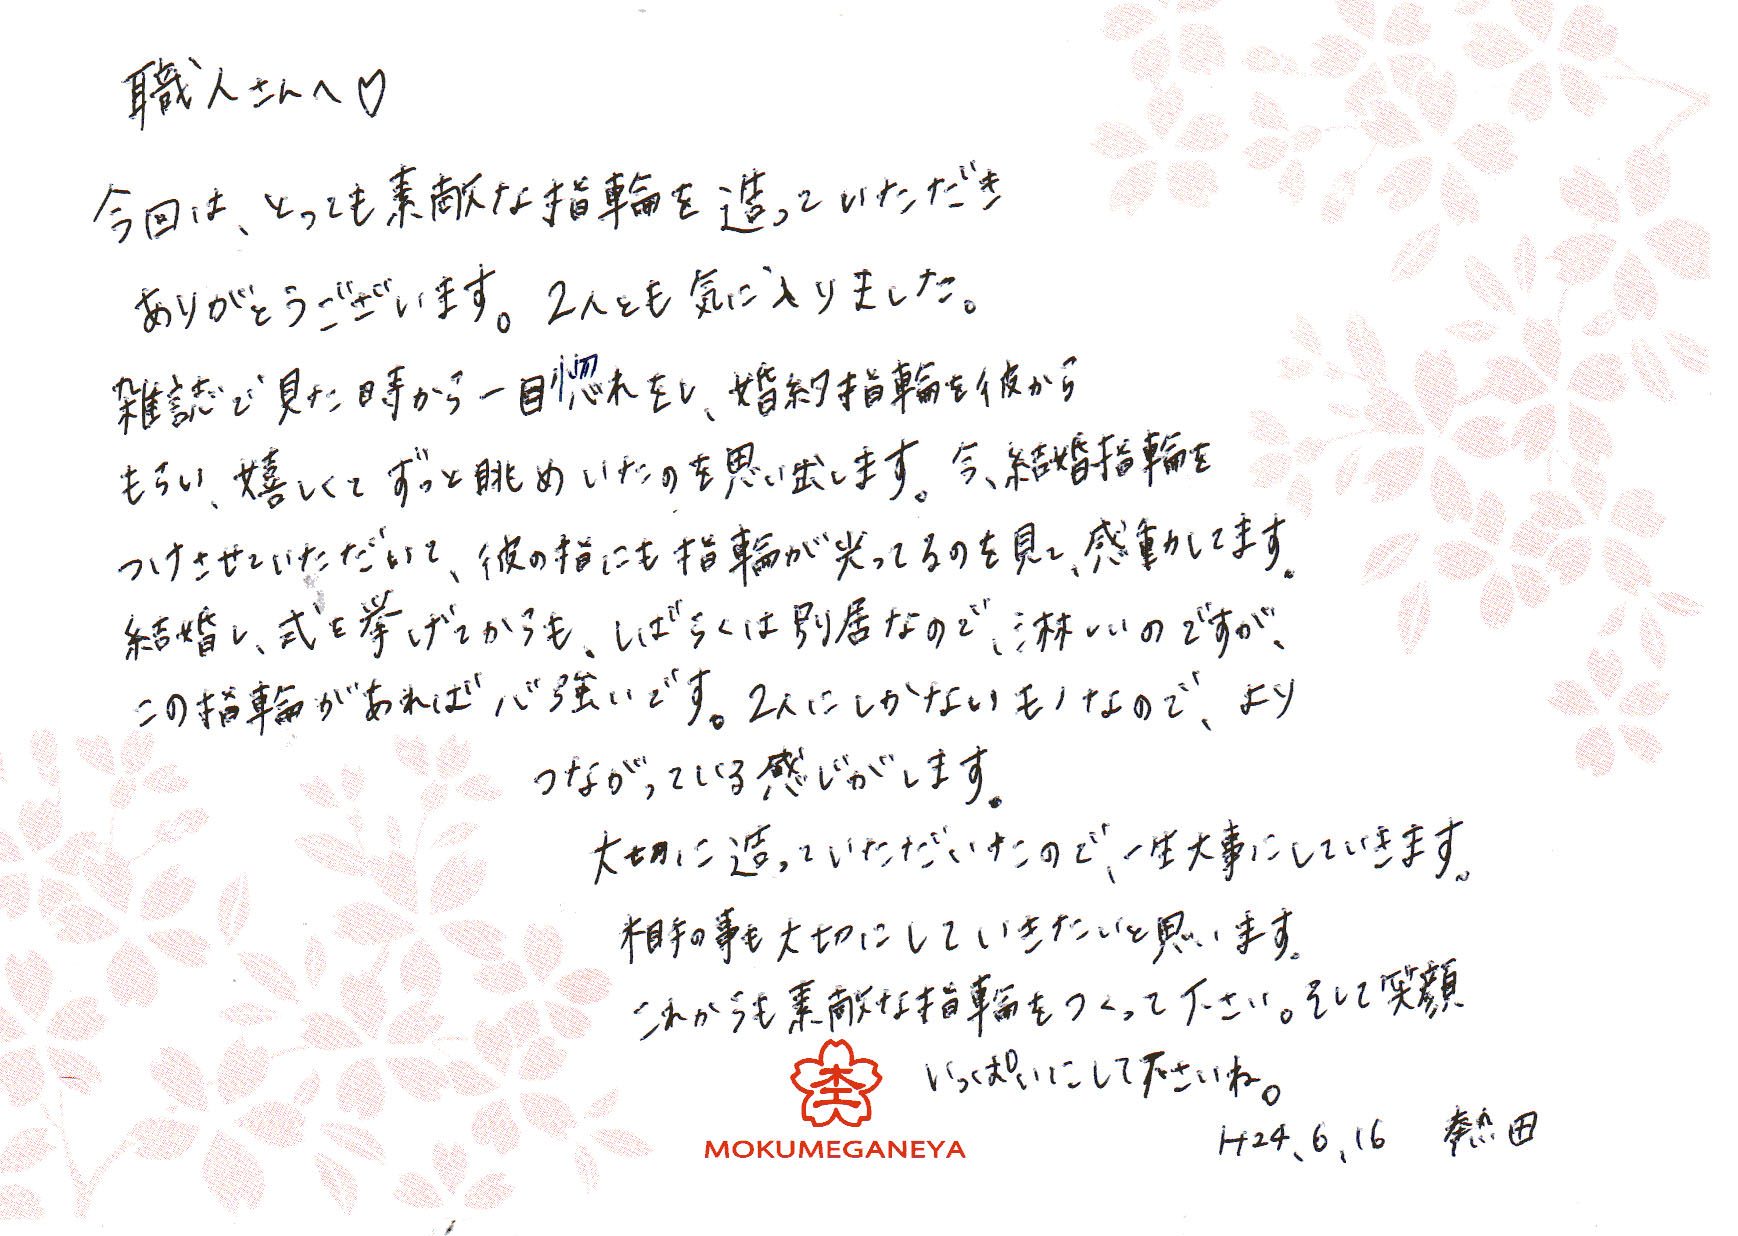 職人さんへ♡
今回は、とっても素敵な指輪を造っていただき
ありがとうございます。2人とも気に入りました。
雑誌で見た時から一目惚れをし、婚約指輪を彼から
もらい、嬉しくてずっと眺めいたのを思い出します。今、結婚指輪を
つけさせていただいて、彼の指にも指輪が光ってるのを見て、感動してます。
結婚し、式を挙げてからも、しばらくは別居なので、淋しいのですが、
この指輪があれば心強いです。2人にしかないモノなので、より
つながっている感じがします。
大切に造っていただいたので、一生大事にしていきます。
相手の事も大切にしていきたいと思います。
これからも素敵な指輪をつくって下さい。そして笑顔
いっぱいにして下さいね。
H24.6.16 熱田
MOKUMEGANEYA